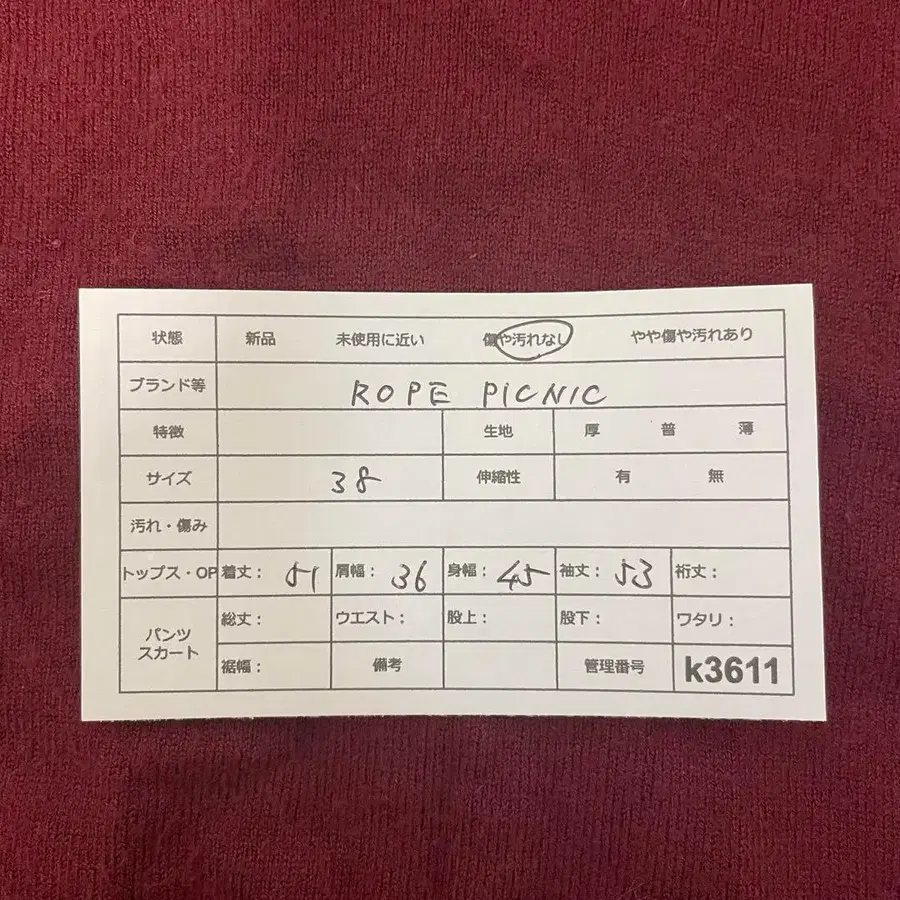 状態 新品 未使用に近い 傷や汚れなし やや傷や汚れあり
ブランド等 ROPE PICNIC
特徴 生地 厚 普 薄
サイズ 38 伸縮性 有 無
汚れ・傷み
トップス・OP 着丈： 51 肩幅： 36 身幅： 45 袖丈： 53 裄丈：
パンツ スカート 総丈： ウエスト： 股上： 股下： ワタリ：
裾幅： 備考 管理番号 k3611